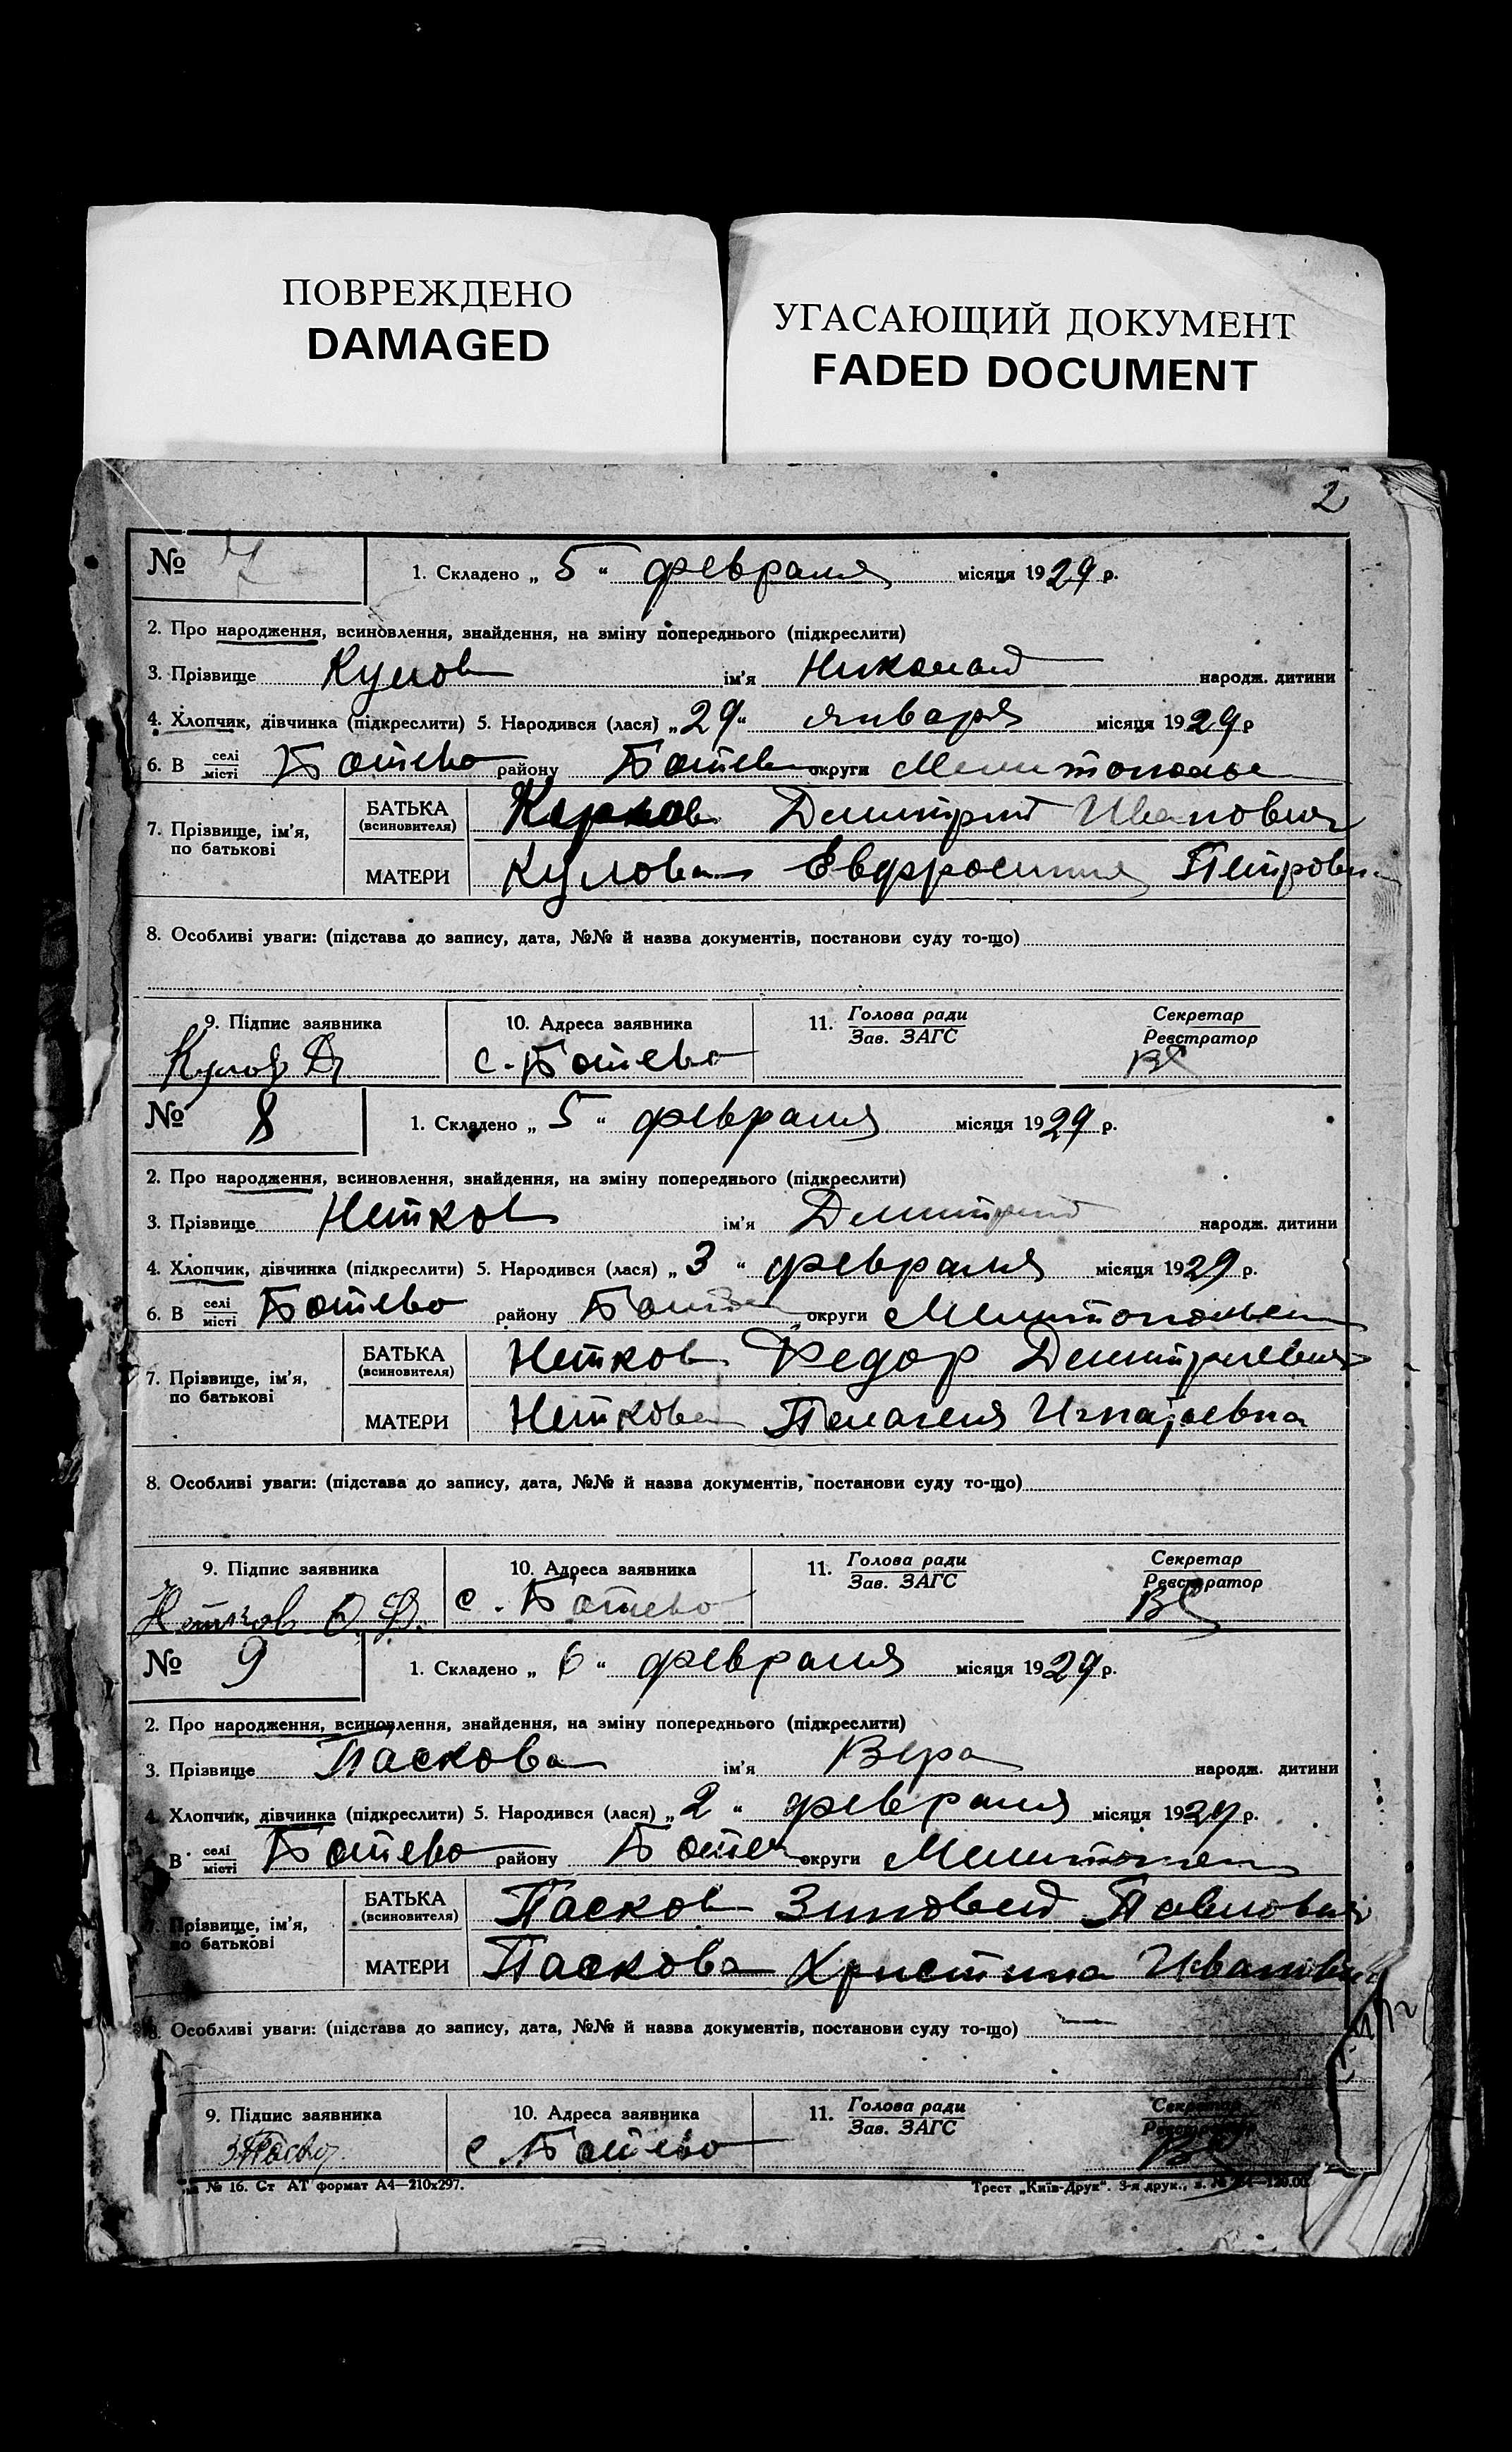 ПОВРЕЖДЕНО
DAMAGED
УГАСАЮЩИЙ ДОКУМЕНТ
FADED DOCUMENT
2
№ 7
1. Складено „ 5 “ февраля місяця 1929 р.
2. Про народження, всиновлення, знайдення, на зміну попереднього (підкреслити)
3. Прізвище Кулов ім'я Николай народж. дитини
4. Хлопчик, дівчинка (підкреслити) 5. Народився (лася) „ 29 “ января місяця 1929 р
6. В селі місті Ботево району Ботев округи
7. Прізвище, ім'я, по батькові
БАТЬКА (всиновителя) Дмитрий Иванович
МАТЕРИ Кулова Евфросиния Петровн
8. Особливі уваги: (підстава до запису, дата, №№ й назва документів, постанови суду то-що)
9. Підпис заявника 10. Адреса заявника 11. Голова ради Зав. ЗАГС Секретар Реєстратор
Кулов Д с. Ботево
№ 8
1. Складено „ 5 “ февраля місяця 1929 р.
2. Про народження, всиновлення, знайдення, на зміну попереднього (підкреслити)
3. Прізвище Нетков ім'я Дмитрий народж. дитини
4. Хлопчик, дівчинка (підкреслити) 5. Народився (лася) „ 3 “ февраля місяця 1929 р.
6. В селі місті Ботево району округи
7. Прізвище, ім'я, по батькові
БАТЬКА (всиновителя) Нетков Федор Дмитриевич
МАТЕРИ Неткова Пелагея Игнатьевна
8. Особливі уваги: (підстава до запису, дата, №№ й назва документів, постанови суду то-що)
9. Підпис заявника 10. Адреса заявника 11. Голова ради Зав. ЗАГС Секретар Реєстратор
Нетков с. Ботево
№ 9
1. Складено „ 6 “ февраля місяця 1929 р.
2. Про народження, всиновлення, знайдення, на зміну попереднього (підкреслити)
3. Прізвище Паскова ім'я Вера народж. дитини
4. Хлопчик, дівчинка (підкреслити) 5. Народився (лася) „ 2 “ февраля місяця 1929 р.
В селі місті Ботево району Ботев округи
Прізвище, ім'я, по батькові
БАТЬКА (всиновителя) Пасков Зиновей Павлович
МАТЕРИ Паскова Христина Ивановн
Особливі уваги: (підстава до запису, дата, №№ й назва документів, постанови суду то-що) —
9. Підпис заявника 10. Адреса заявника 11. Голова ради Зав. ЗАГС Секретар Реєстратор
с Ботево
№ 16. Ст АТ формат А4—210х297. Трест „Київ-Друк“. 3-я друк.,